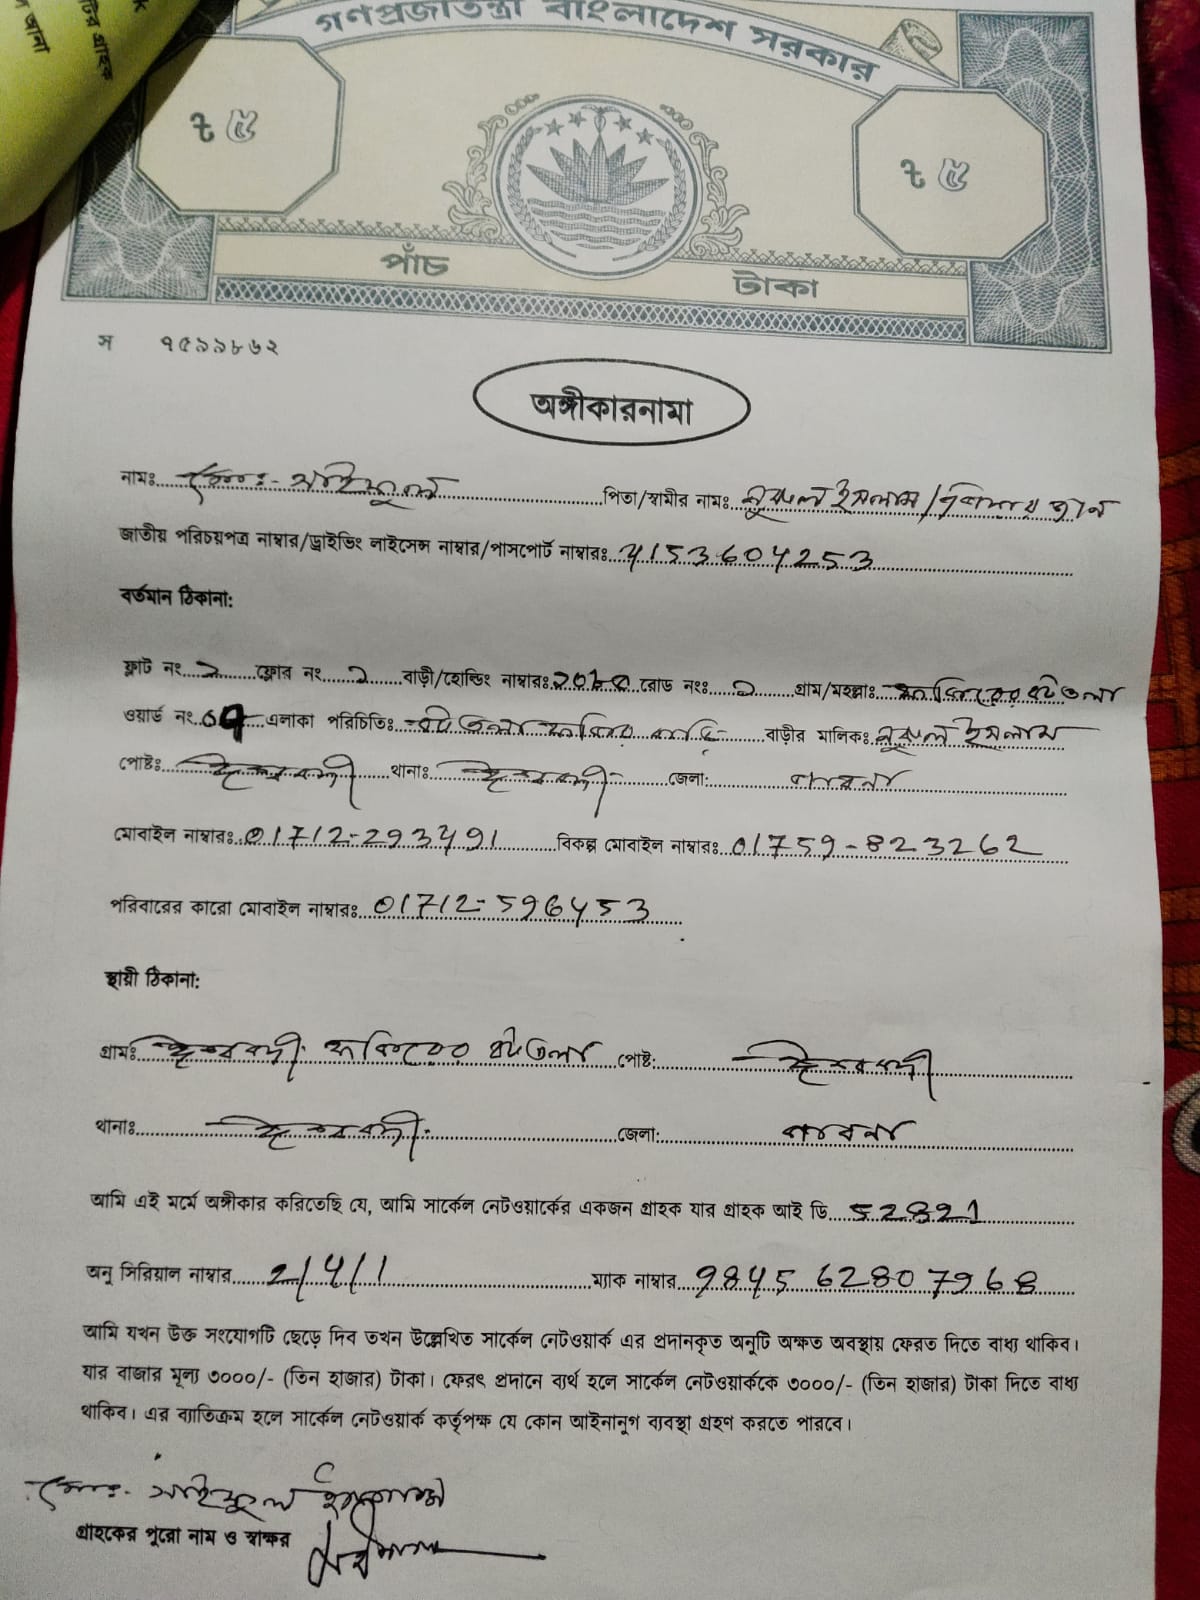 গণপ্রজাতন্ত্রী বাংলাদেশ সরকার
৳ ৫
৳ ৫
পাঁচ টাকা
স ৭৫৯৯৮৬২
অঙ্গীকারনামা
নামঃ মোঃ- সাইফুল পিতা/স্বামীর নামঃ নুরুল ইসলাম/
জাতীয় পরিচয়পত্র নাম্বার/ড্রাইভিং লাইসেন্স নাম্বার/পাসপোর্ট নাম্বারঃ 4153604253
বর্তমান ঠিকানা:
ফ্লাট নং ফ্লোর নং বাড়ী/হোল্ডিং নাম্বারঃ রোড নংঃ গ্রাম/মহল্লাঃ ফকিরের বটতলা
ওয়ার্ড নং এলাকা পরিচিতিঃ বটতলা বাড়ীর মালিকঃ নুরুল ইসলাম
পোষ্টঃ ঈশ্বরদী থানাঃ ঈশ্বরদী জেলা: পাবনা
মোবাইল নাম্বারঃ 01712-293491 বিকল্প মোবাইল নাম্বারঃ 01759-823262
পরিবারের কারো মোবাইল নাম্বারঃ 01712-596453
স্থায়ী ঠিকানা:
গ্রামঃ ঈশ্বরদী ফকিরের বটতলা পোষ্ট: ঈশ্বরদী
থানাঃ ঈশ্বরদী জেলা: পাবনা
আমি এই মর্মে অঙ্গীকার করিতেছি যে, আমি সার্কেল নেটওয়ার্কের একজন গ্রাহক যার গ্রাহক আই ডি 52821
অনু সিরিয়াল নাম্বার 2/4/1 ম্যাক নাম্বার 9845 62807968
আমি যখন উক্ত সংযোগটি ছেড়ে দিব তখন উল্লেখিত সার্কেল নেটওয়ার্ক এর প্রদানকৃত অনুটি অক্ষত অবস্থায় ফেরত দিতে বাধ্য থাকিব।
যার বাজার মূল্য ৩০০০/- (তিন হাজার) টাকা। ফেরৎ প্রদানে ব্যর্থ হলে সার্কেল নেটওয়ার্ককে ৩০০০/- (তিন হাজার) টাকা দিতে বাধ্য
থাকিব। এর ব্যাতিক্রম হলে সার্কেল নেটওয়ার্ক কর্তৃপক্ষ যে কোন আইনানুগ ব্যবস্থা গ্রহণ করতে পারবে।
মোঃ- সাইফুল ইসলাম
গ্রাহকের পুরো নাম ও স্বাক্ষর